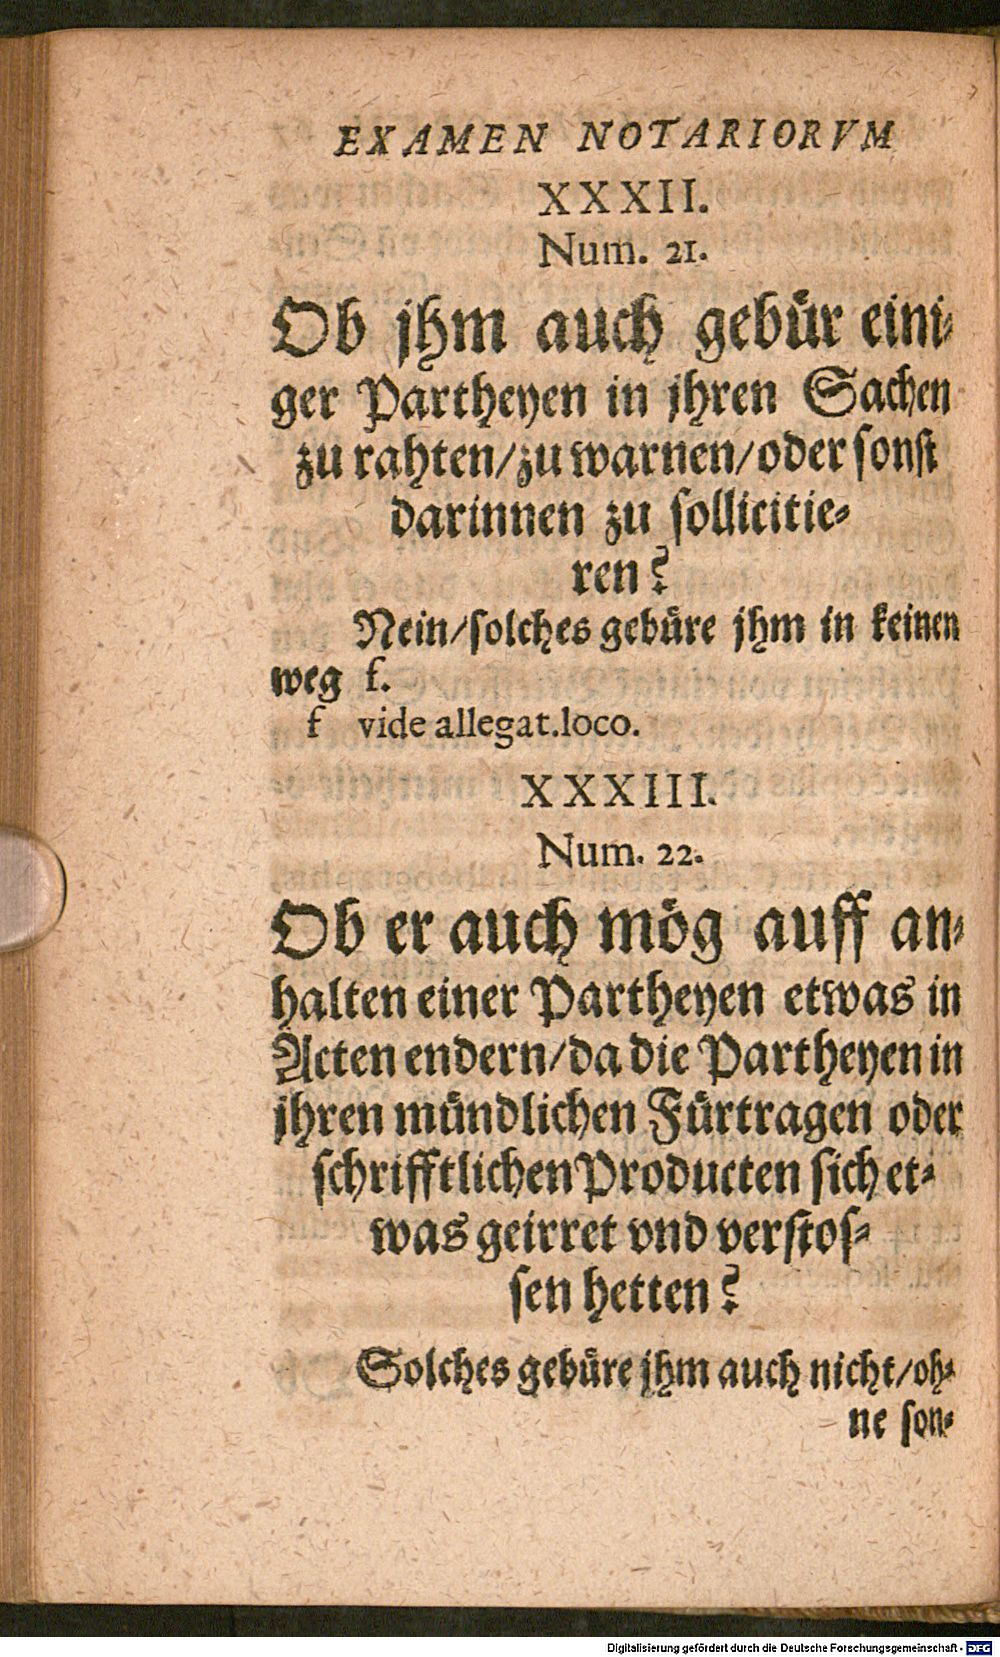 EXAMEN NOTARIORVM
XXXII.
Num. 21.
Ob jhm auch gebür eini-
ger Partheyen in jhren Sachen
zu rahten/zu warnen/oder sonst
darinnen zu sollicitie-
ren?
Nein/solches gebüre jhm in keinen
weg f.
f vide allegat.loco.
XXXIII.
Num. 22.
Ob er auch mög auff an-
halten einer Partheyen etwas in
Acten endern/da die Partheyen in
jhren mündlichen Fürtragen oder
schrifftlichen Producten sich et-
was geirret vnd verstos-
sen hetten?
Solches gebüre jhm auch nicht/oh-
ne son-
Digitalisierung gefördert durch die Deutsche Forschungsgemeinschaft - DFG